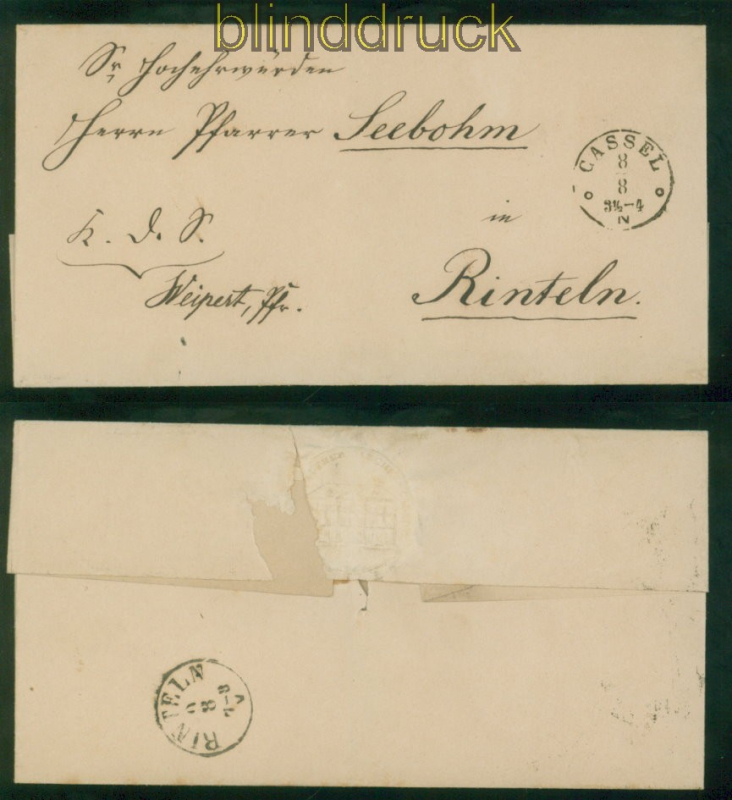 blinddruck
Sr Hochehrwürden
Herrn Pfarrer Seebohm
CASSEL
8
8
3½-4
N
in
K. D. S.
Weipert, Pfr.
Rinteln.
RINTELN
8
7-8
V